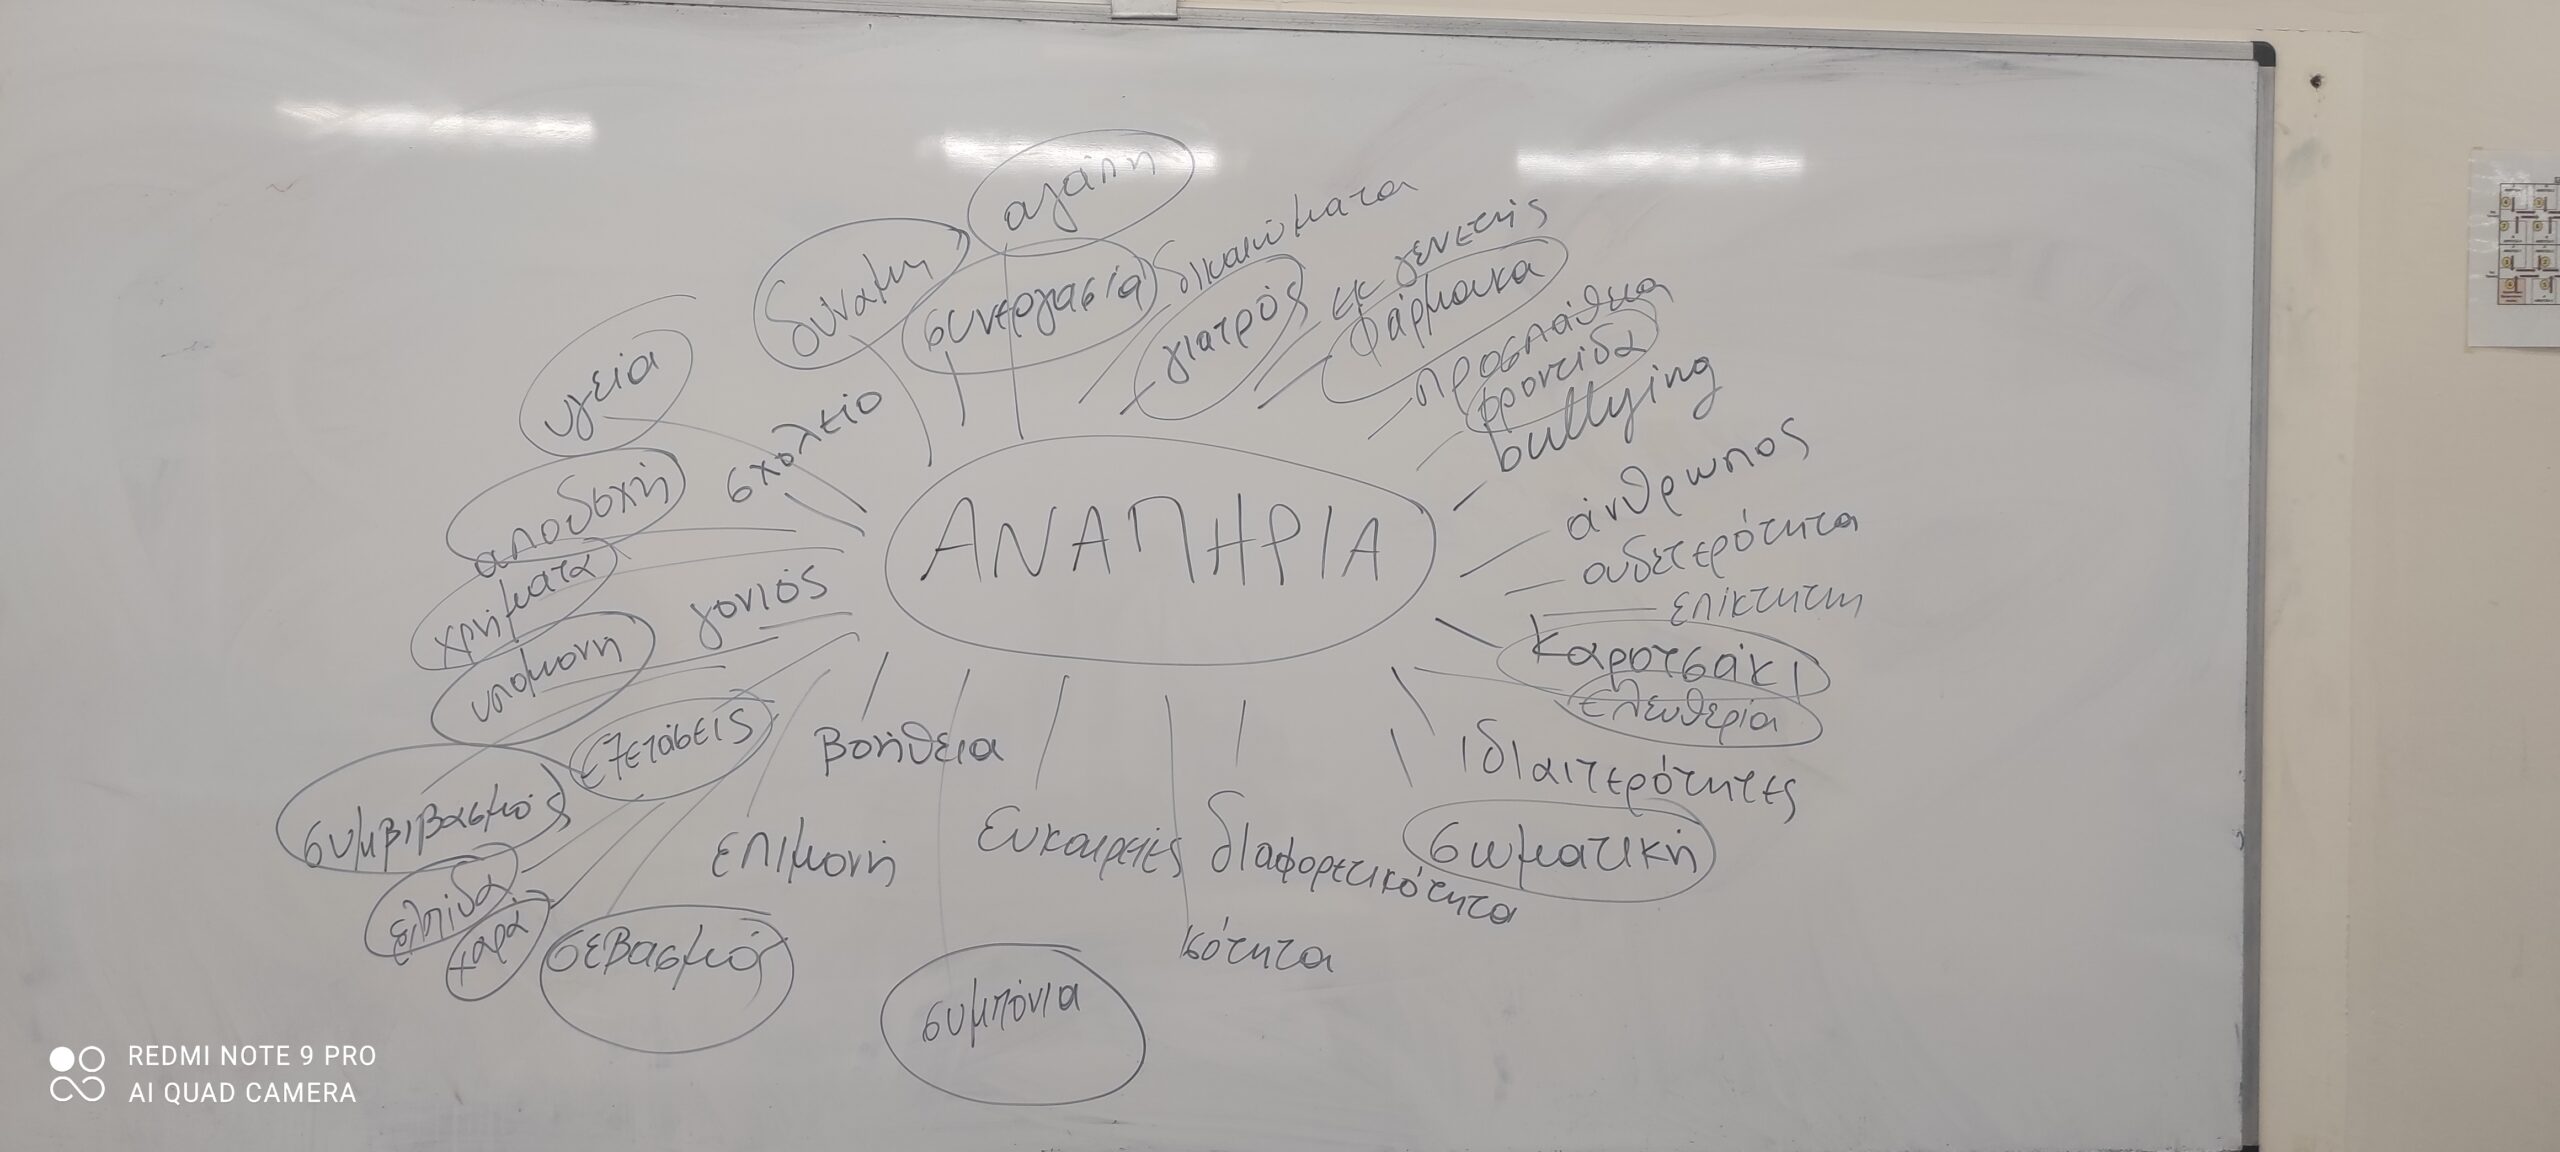 αγάπη
δύναμη
συνεργασία
δικαιώματα
γιατρός
εκ γενετής
φάρμακα
προσπάθεια
φροντίδα
bullying
άνθρωπος
ουδετερότητα
επίκτητη
καροτσάκι
ελευθερία
ιδιαιτερότητες
σωματική
διαφορετικότητα
ισότητα
ευκαιρίες
συμπόνια
βοήθεια
επιμονή
σεβασμός
χαρά
ελπίδα
εξετάσεις
συμβιβασμός
υπομονή
γονιός
χρήματα
αποδοχή
σχολείο
υγεία
ΑΝΑΠΗΡΙΑ
REDMI NOTE 9 PRO
AI QUAD CAMERA